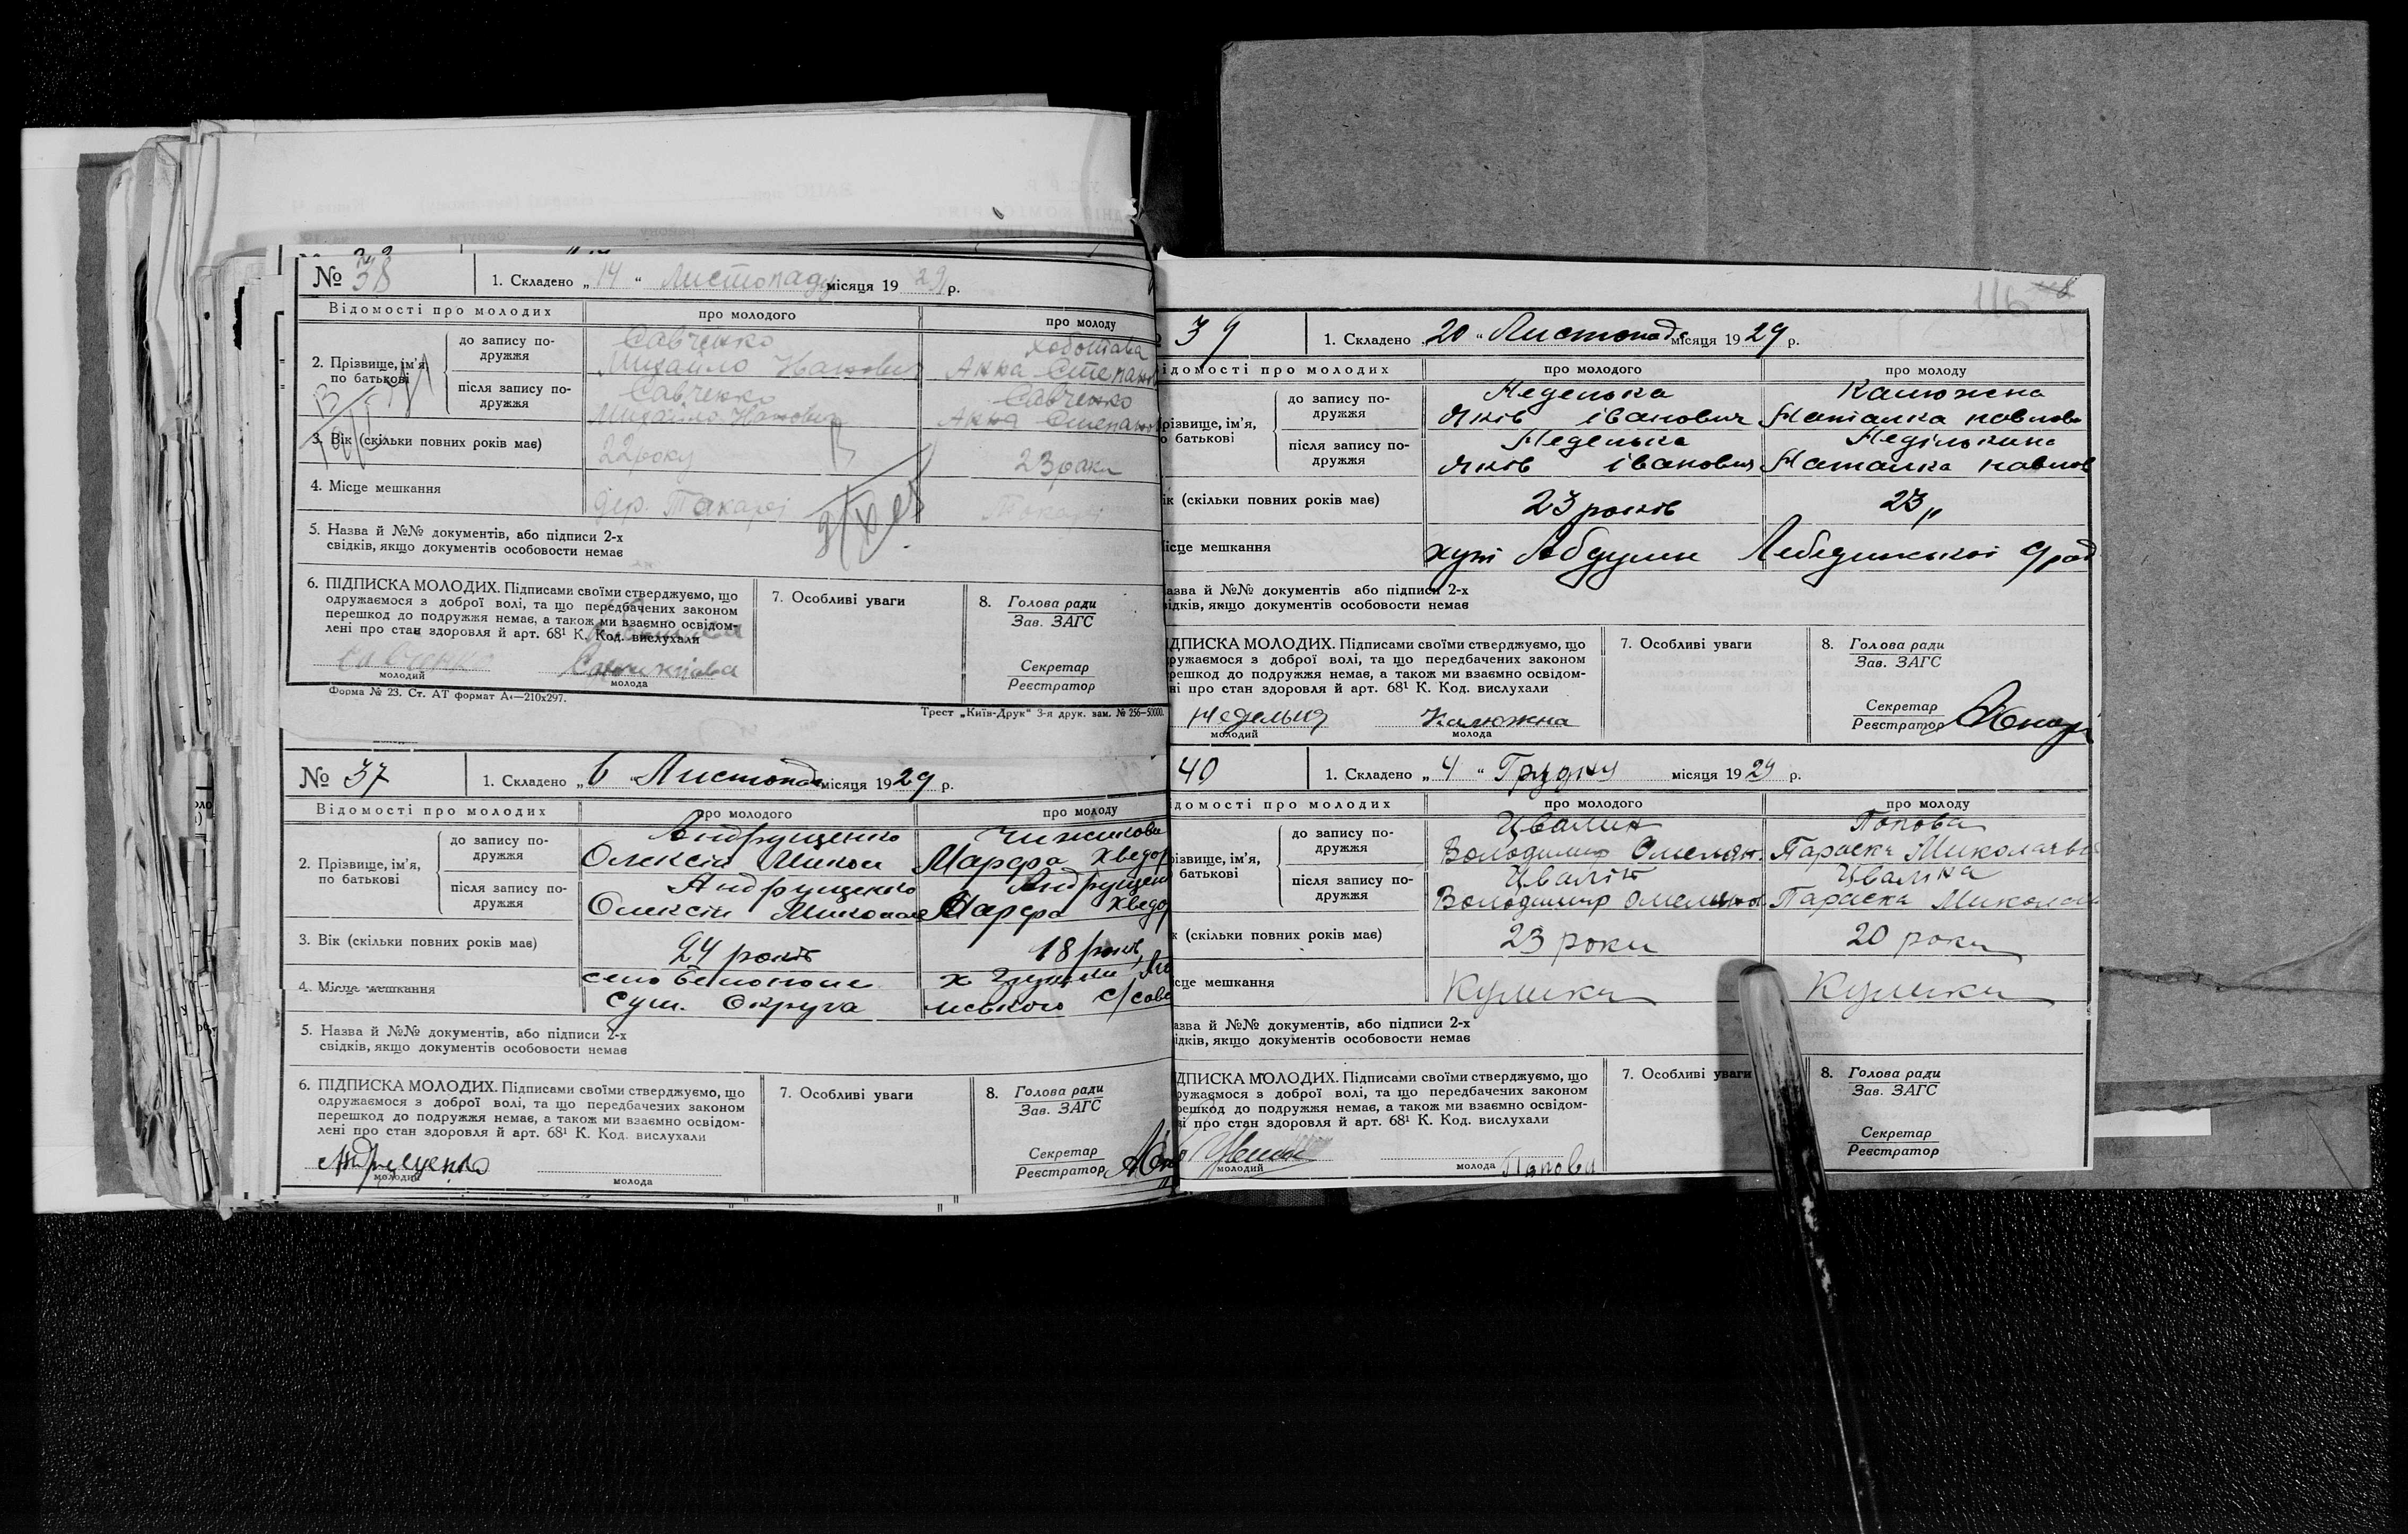 № 38
1. Складено „ 14 “ Листопаду місяця 19 29 р.
Відомості про молодих
про молодого
про молоду
2. Прізвище, ім'я, по батькові
до запису подружжя
Савченко
Михайло
Анна Степан
після запису подружжя
Савченко
Михайло
Савченко
Анна Степан
3. Вік (скільки повних років має)
22 року
23 роки
4. Місце мешкання
дер. Токарі
Токарі
5. Назва й №№ документів, або підписи 2-х
свідків, якщо документів особовости немає
6. ПІДПИСКА МОЛОДИХ. Підписами своїми стверджуємо, що
одружаємося з доброї волі, та що передбачених законом
перешкод до подружжя немає, а також ми взаємно освідом-
лені про стан здоровля й арт. 68¹ К. Код. вислухали
Савченко
молодий
молода
7. Особливі уваги
8. Голова ради
Зав. ЗАГС
Секретар
Реєстратор
Форма № 23. Ст. АТ формат А₄—210х297.
Трест „Київ-Друк“ 3-я друк. зам. № 256—50000.
№ 37
1. Складено „ 6 Листопада місяця 19 29 р.
Відомості про молодих
про молодого
про молоду
2. Прізвище, ім'я,
по батькові
до запису подружжя
Андрущенко
Олексій Микол
Чижикова
Марфа Хведор
після запису подружжя
Андрущенко
Олексій Микола
Андрущен
Марфа Хведо
3. Вік (скільки повних років має)
24 років
18 років
4. Місце мешкання
село
Сум. Округа
х
с/сове
5. Назва й №№ документів, або підписи 2-х
свідків, якщо документів особовости немає
6. ПІДПИСКА МОЛОДИХ. Підписами своїми стверджуємо, що
одружаємося з доброї волі, та що передбачених законом
перешкод до подружжя немає, а також ми взаємно освідом-
лені про стан здоровля й арт. 68¹ К. Код. вислухали
Андрущенко
молодий
молода
7. Особливі уваги
8. Голова ради
Зав. ЗАГС
Секретар
Реєстратор
116
39
1. Складено „ 20 “ Листопада місяця 19 29 р.
ідомості про молодих
про молодого
про молоду
різвище, ім'я,
о батькові
до запису подружжя
Неделька
Яків іванович
Калюжена
Наталка павлов
після запису подружжя
Неделька
Яків іванович
Недількина
Наталка павлов
ік (скільки повних років має)
23 років
23 „
ісце мешкання
хут Абдули Лебединської
азва й №№ документів або підписи 2-х
відків, якщо документів особовости немає
ДПИСКА МОЛОДИХ. Підписами своїми стверджуємо, що
ружаємося з доброї волі, та що передбачених законом
решкод до подружжя немає, а також ми взаємно освідом-
ні про стан здоровля й арт. 68¹ К. Код. вислухали
Неделька
молодий
Калюжна
молода
7. Особливі уваги
8. Голова ради
Зав. ЗАГС
Секретар
Реєстратор
40
1. Складено „ 4 “ Грудня місяця 19 29 р.
домості про молодих
про молодого
про молоду
різвище, ім'я,
батькові
до запису подружжя
Цвалин
Володимир Омелян.
Попова
Параска Миколаєв
після запису подружжя
Цвалін
Володимир Омелянов
Цваліна
Параска Микола
к (скільки повних років має)
23 роки
20 роки
сце мешкання
Кулики
Кулики
азва й №№ документів, або підписи 2-х
ідків, якщо документів особовости немає
ДПИСКА МОЛОДИХ. Підписами своїми стверджуємо, що
ружаємося з доброї волі, та що передбачених законом
решкод до подружжя немає, а також ми взаємно освідом-
і про стан здоровля й арт. 68¹ К. Код. вислухали
молодий
молода Попова
7. Особливі уваги
8. Голова ради
Зав. ЗАГС
Секретар
Реєстратор